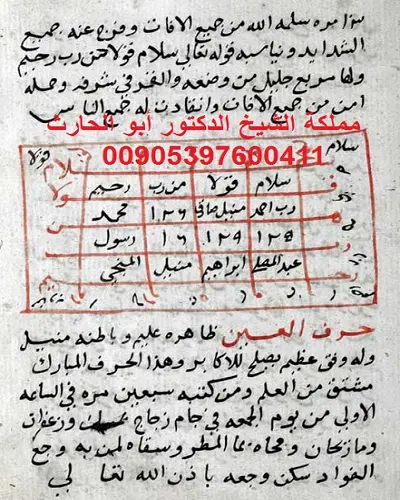 مره سلمه الله من جميع الافات وفرج عنه جميع
الشدايد ويناسبه قوله تعالي سلام قولا من رب رحيم
ولها سريع جليل من وضعه والقمر في شرفه وحمله
امن من جميع الافات وانقادت له جميع الناس
مملكة الشيخ الدكتور أبو الحارث
00905397600411
سلام قولا
سلام قولا من رب رحيم
رب احمد ١٢٦ محمد
١٢٥ ١٢٩ ١٦ رسول
ابراهيم
حرف العين ظاهره عليم وباطنه
وله وفق عظيم يصلح للاكابر وهذا الحرف المبارك
مشتق من العلم ومن كتبه سبعين مره في الساعه
الاولي من يوم الجمعه في جام زجاج وزعفران
ومحاه بما المطر وسقاه لمن به وجع
الفواد سكن وجعه باذن الله تعالي